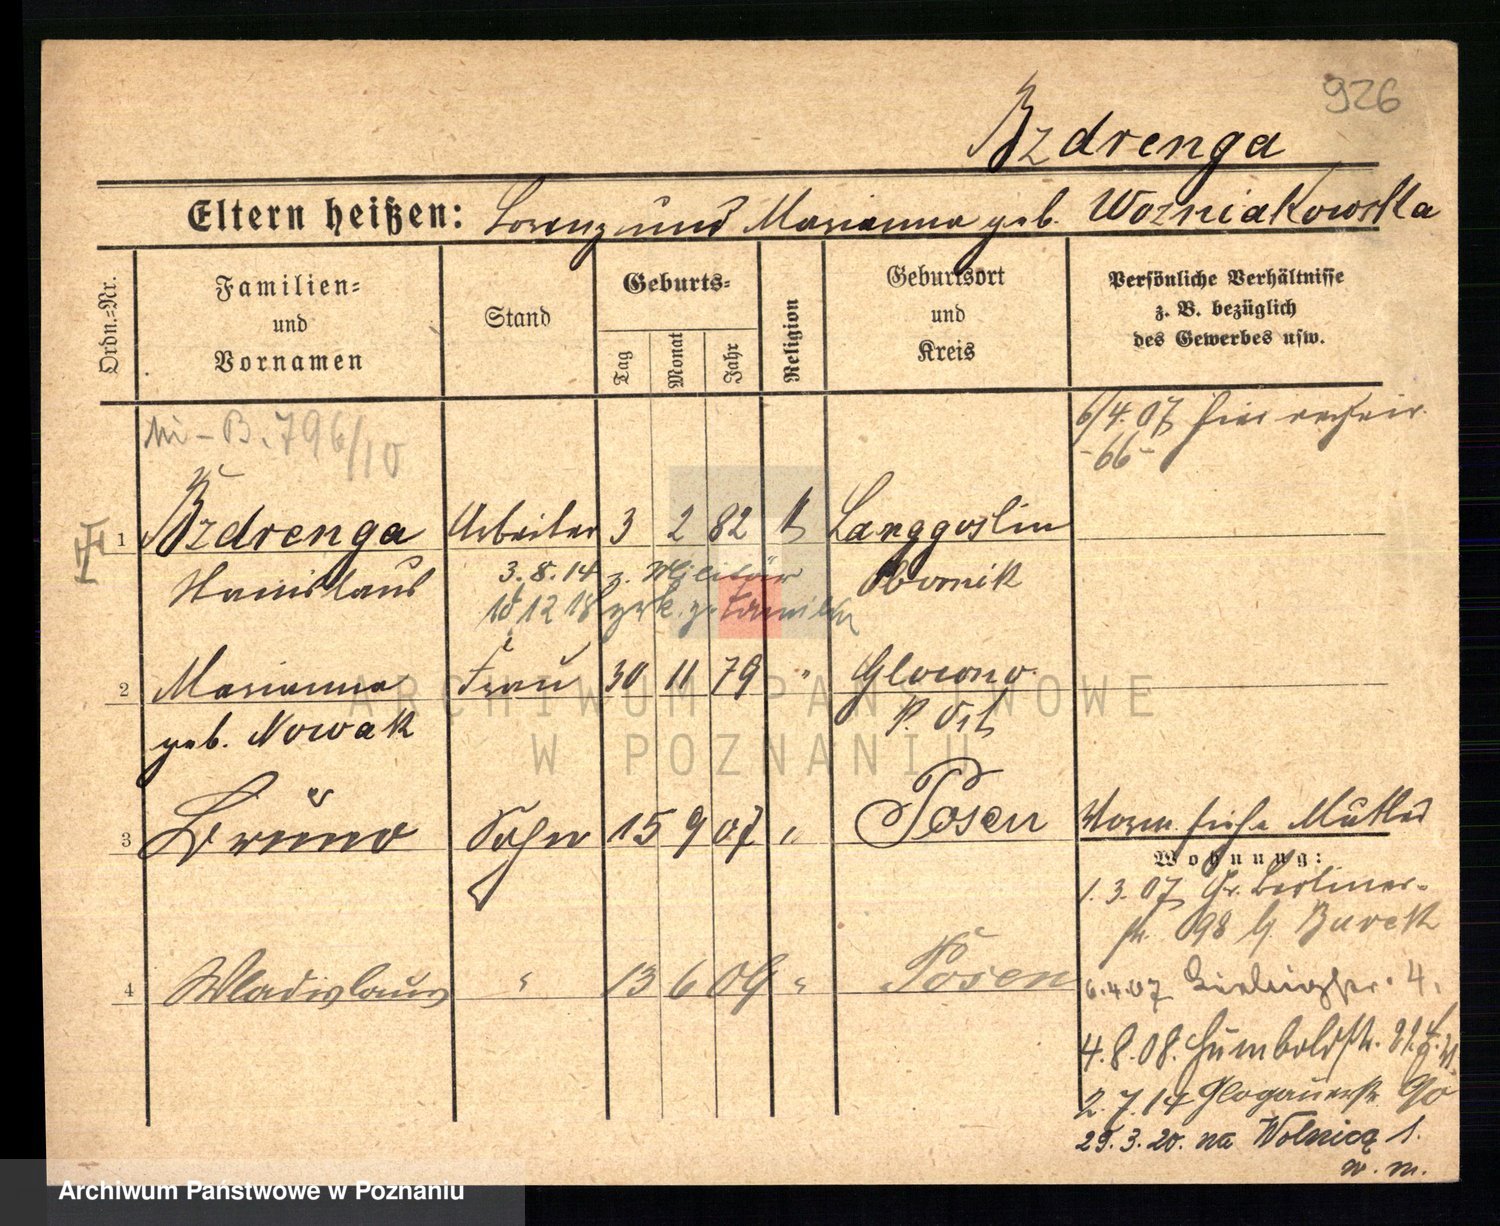 926
Bzdrenga
Eltern heißen: Lorenz und Marianna geb. Wozniakowska
Ordn.-Nr.
Familien-
und
Vornamen
Stand
Geburts-
Tag
Monat
Jahr
Religion
Geburtsort
und
Kreis
Persönliche Verhältnisse
z. B. bezüglich
des Gewerbes usw.
B. 796/10
6/4. 07 hier
-66-
1 Bzdrenga Arbeiter 3 2 82 k Langgoslin
Stanislaus Obornik
3. 8. 14 z. Militär
18 12 18 zrk. z. Familie
2 Marianna Frau 30 11 79 " Glowno
geb. Nowak P. Ost
3 Bruno Sohn 15 9 07 " Posen
siehe Mutter
Wohnung:
1. 3. 07 Gr. Berliner-
str. 98 b/ Burek
4 Wladislaus " 13 6 09 " Posen
6.4.07 4.
4. 8. 08. Humboldtstr.
2. 7. 14 Glogauerstr. 90
25. 3. 20. na Wolnicą 1.
w. m.
ARCHIWUM PAŃSTWOWE
W POZNANIU
Archiwum Państwowe w Poznaniu